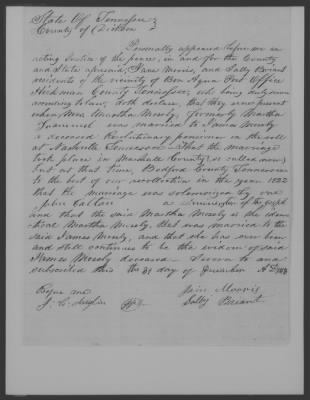 State of Tennessee
County of Dickson
Personally appeared before me an
acting Justice of the peace, in and for the County
and State aforesaid, Jane Morris, and Sally Briant
residents of the vicinity of Bon Aqua Post Office
Hickman County Tennessee, who being duly sworn
according to law, doth declare, that they were present
when Mrs Martha Mosely, formerly Martha
was married to James Mosely
a deceased Revolutionary pensioner on the roll
at Nashville Tennessee - That the marriage
took place in Marshall County (so called now)
but at that time, Bedford County Tennessee
to the best of our recollection in the year 1822
that the marriage was solemnized by one
John a minister of the gospel
and that the said Martha Mosely is the iden-
tical Martha Mosely, that was married to the
said James Mosely, and that she has ever been
and still continues to be the widow of said
James Mosely deceased - Sworn to and
subscribed this the 31 day of December AD
Before me
Jain Morris
J. C. Sally Briant